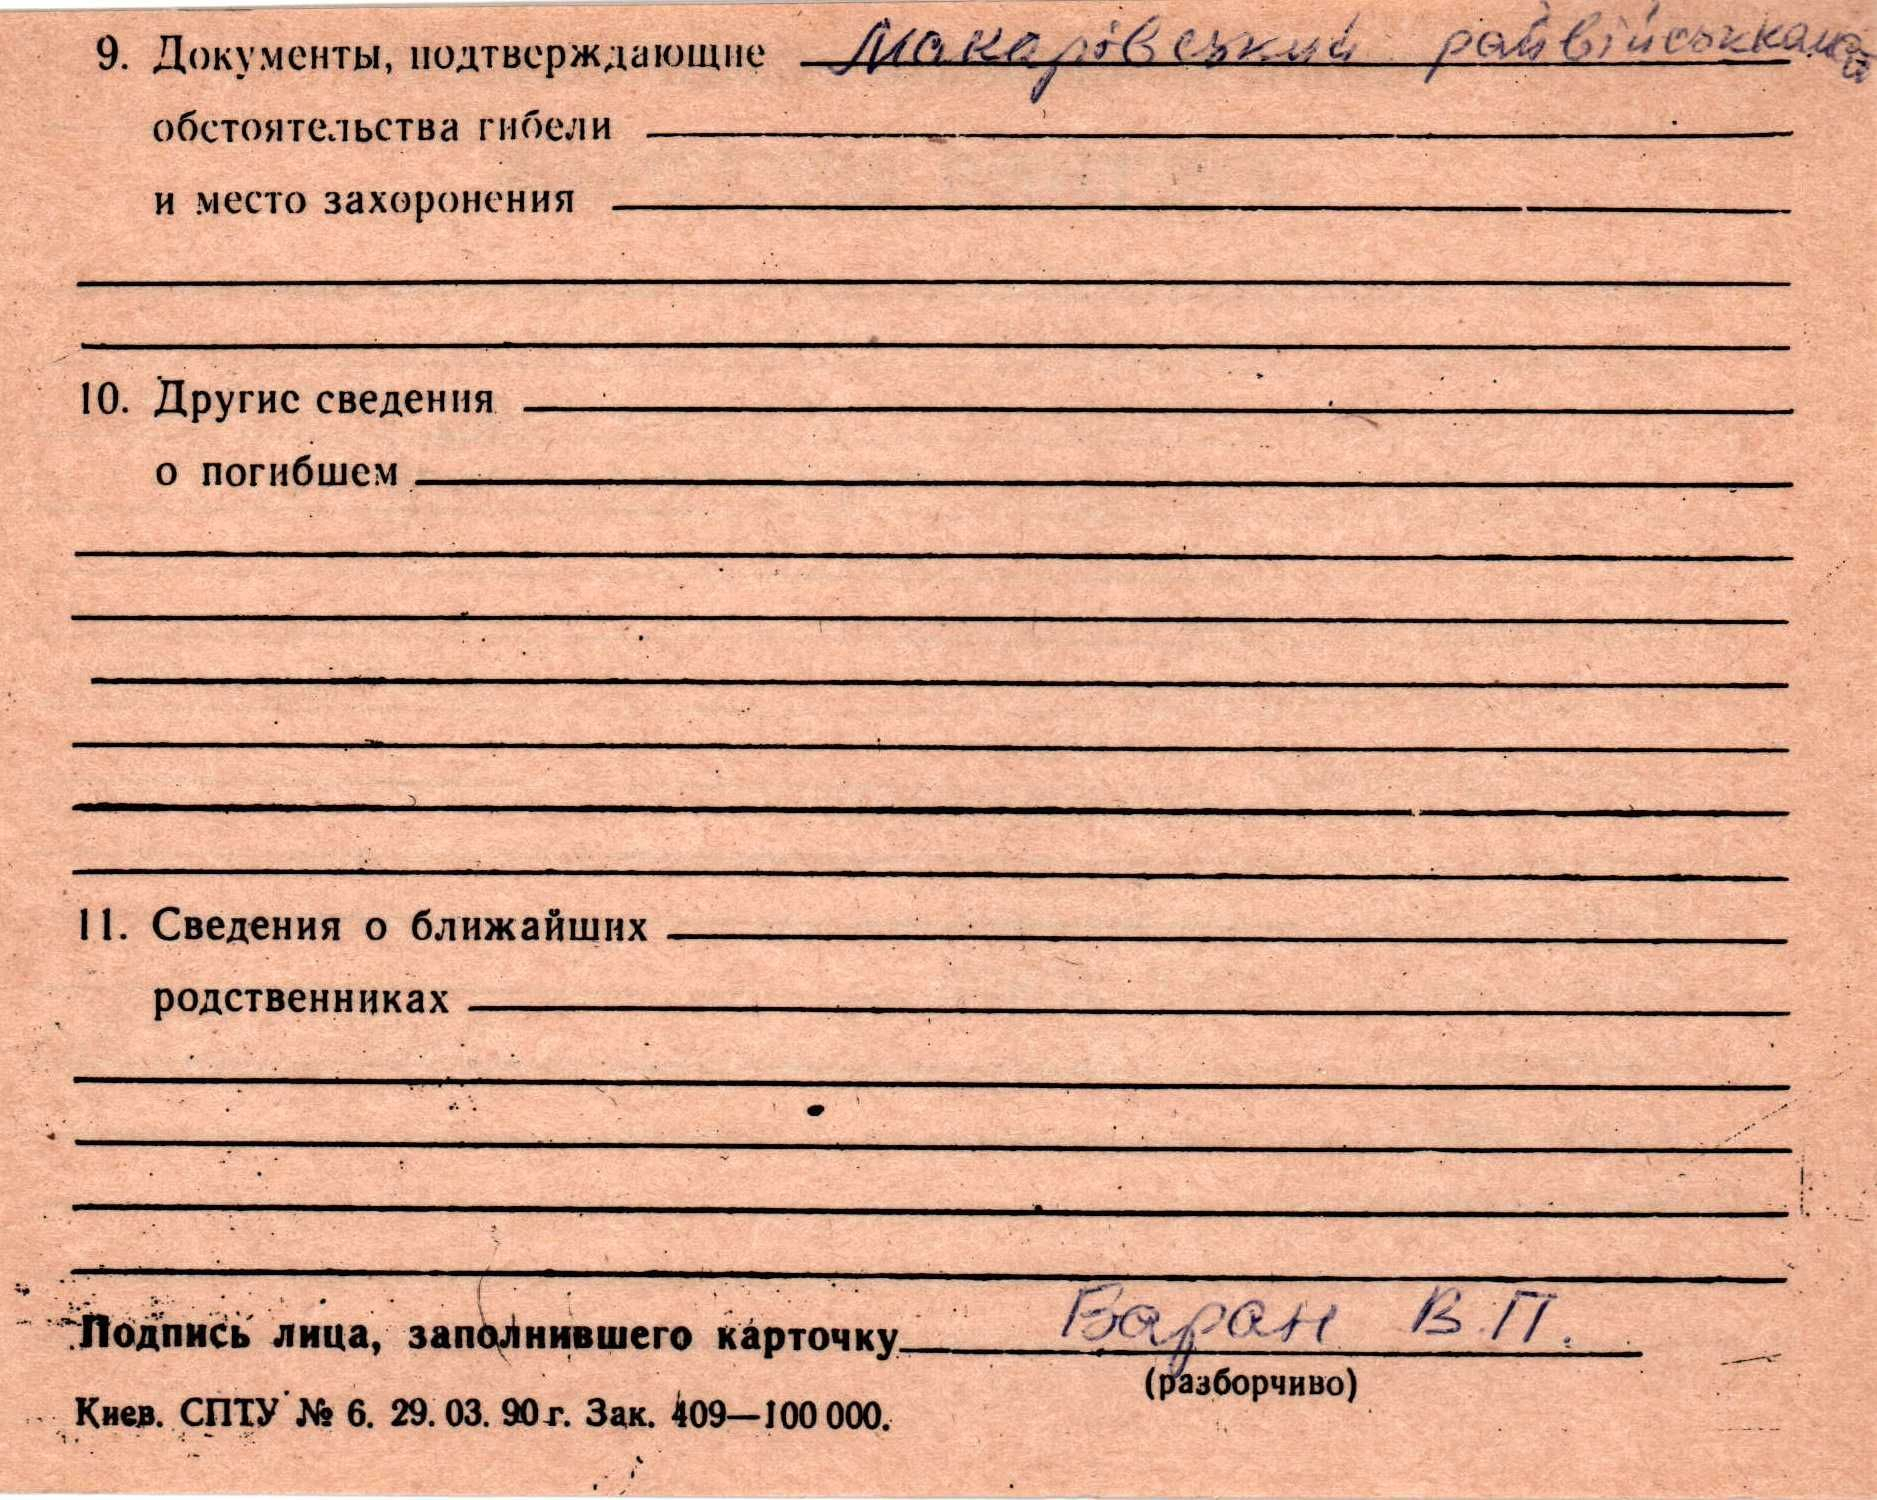 9. Документы, подтверждающие Макарівський райвійськкомат
обстоятельства гибели
и место захоронения
10. Другие сведения
о погибшем
11. Сведения о ближайших
родственниках
Подпись лица, заполнившего карточку Баран В.П.
(разборчиво)
Киев. СПТУ № 6. 29. 03. 90 г. Зак. 409—100 000.